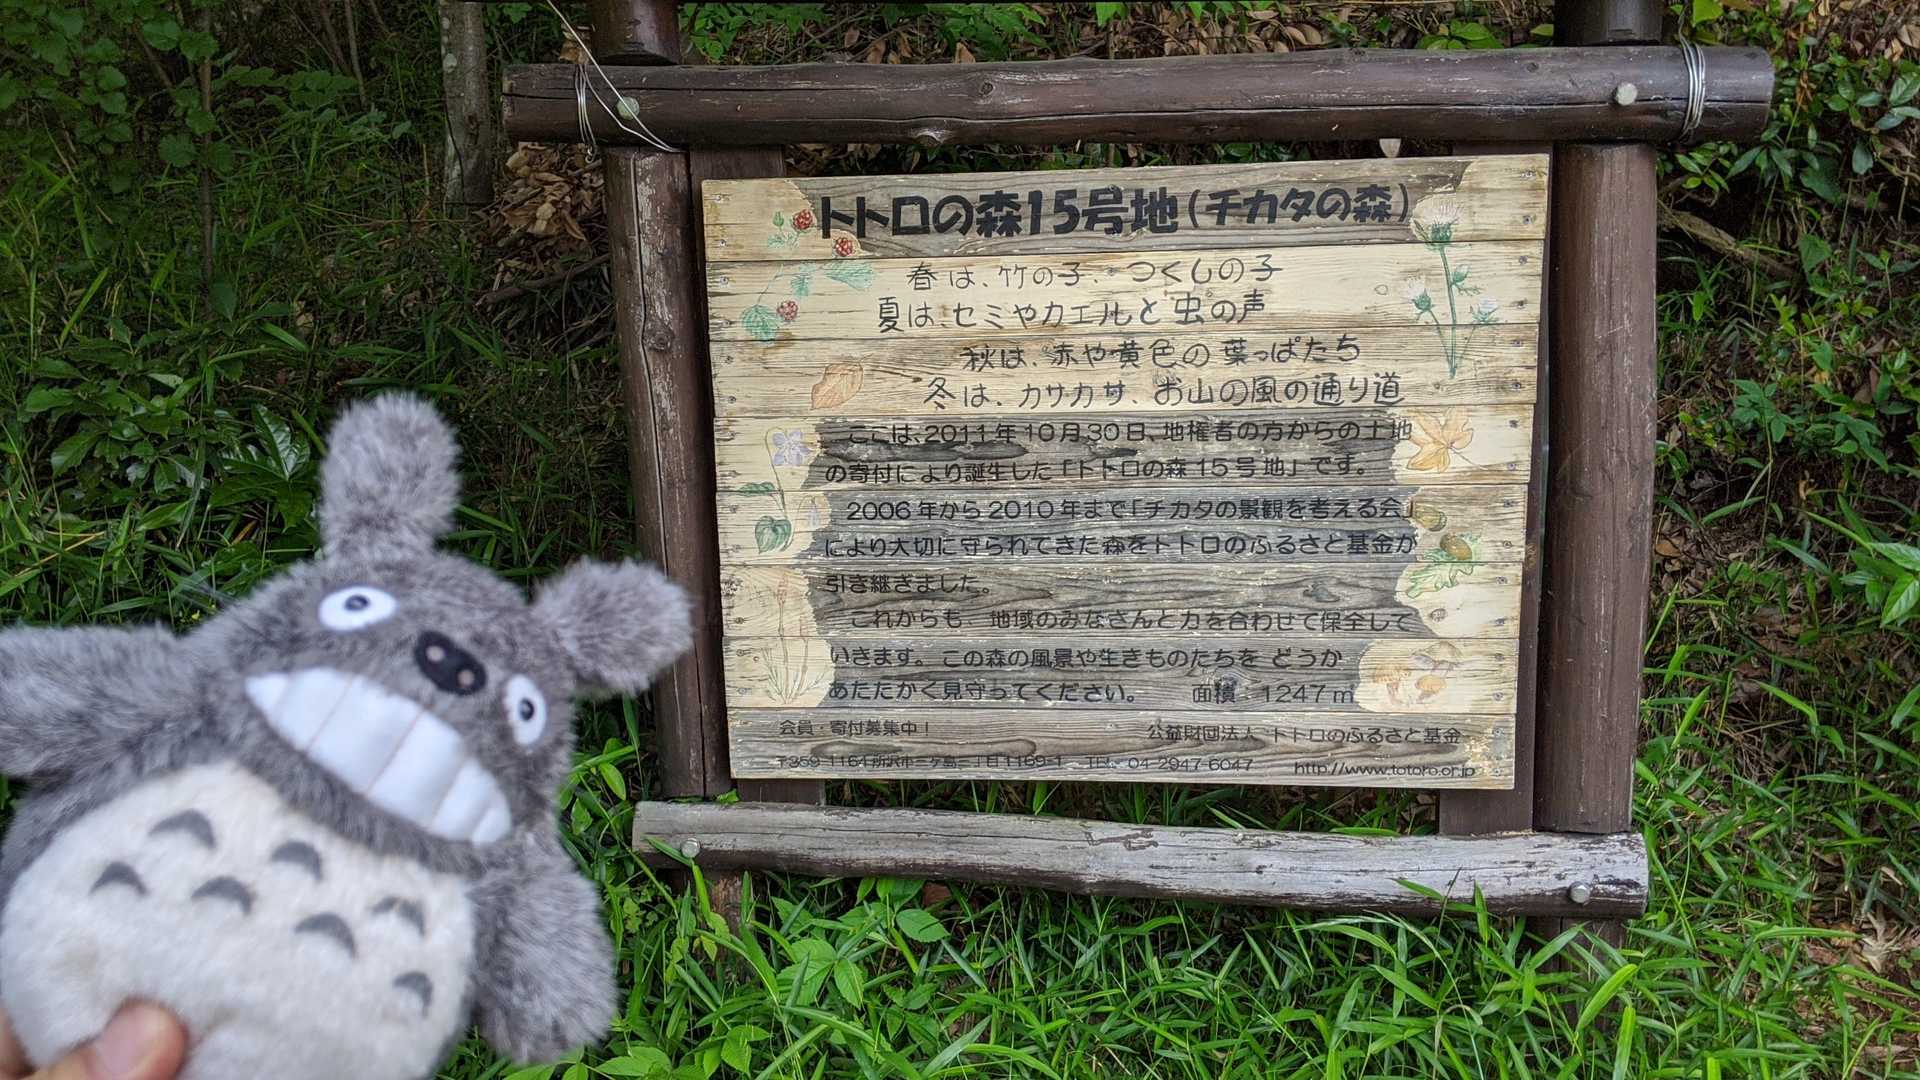 トトロの森15号地(チカタの森)
春は、竹の子、つくしの子
夏は、セミやカエルと虫の声
秋は、赤や黄色の葉っぱたち
冬は、カサカサ、お山の風の通り道
ここは、2011年10月30日、地権者の方からの土地
の寄付により誕生した「トトロの森15号地」です。
2006年から2010年まで「チカタの景観を考える会」
により大切に守られてきた森をトトロのふるさと基金が
引き継ぎました。
これからも、地域のみなさんと力を合わせて保全して
いきます。この森の風景や生きものたちを どうか
あたたかく見守ってください。 面積：1247㎡
会員・寄付募集中！ 公益財団法人 トトロのふるさと基金
〒359-1164所沢市三ヶ島三丁目1169-1 TEL 04-2947-6047 http://www.totoro.or.jp